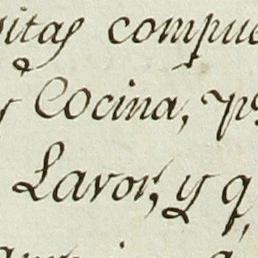 sitas compue
y Cocina, pª
Lavor, y q,